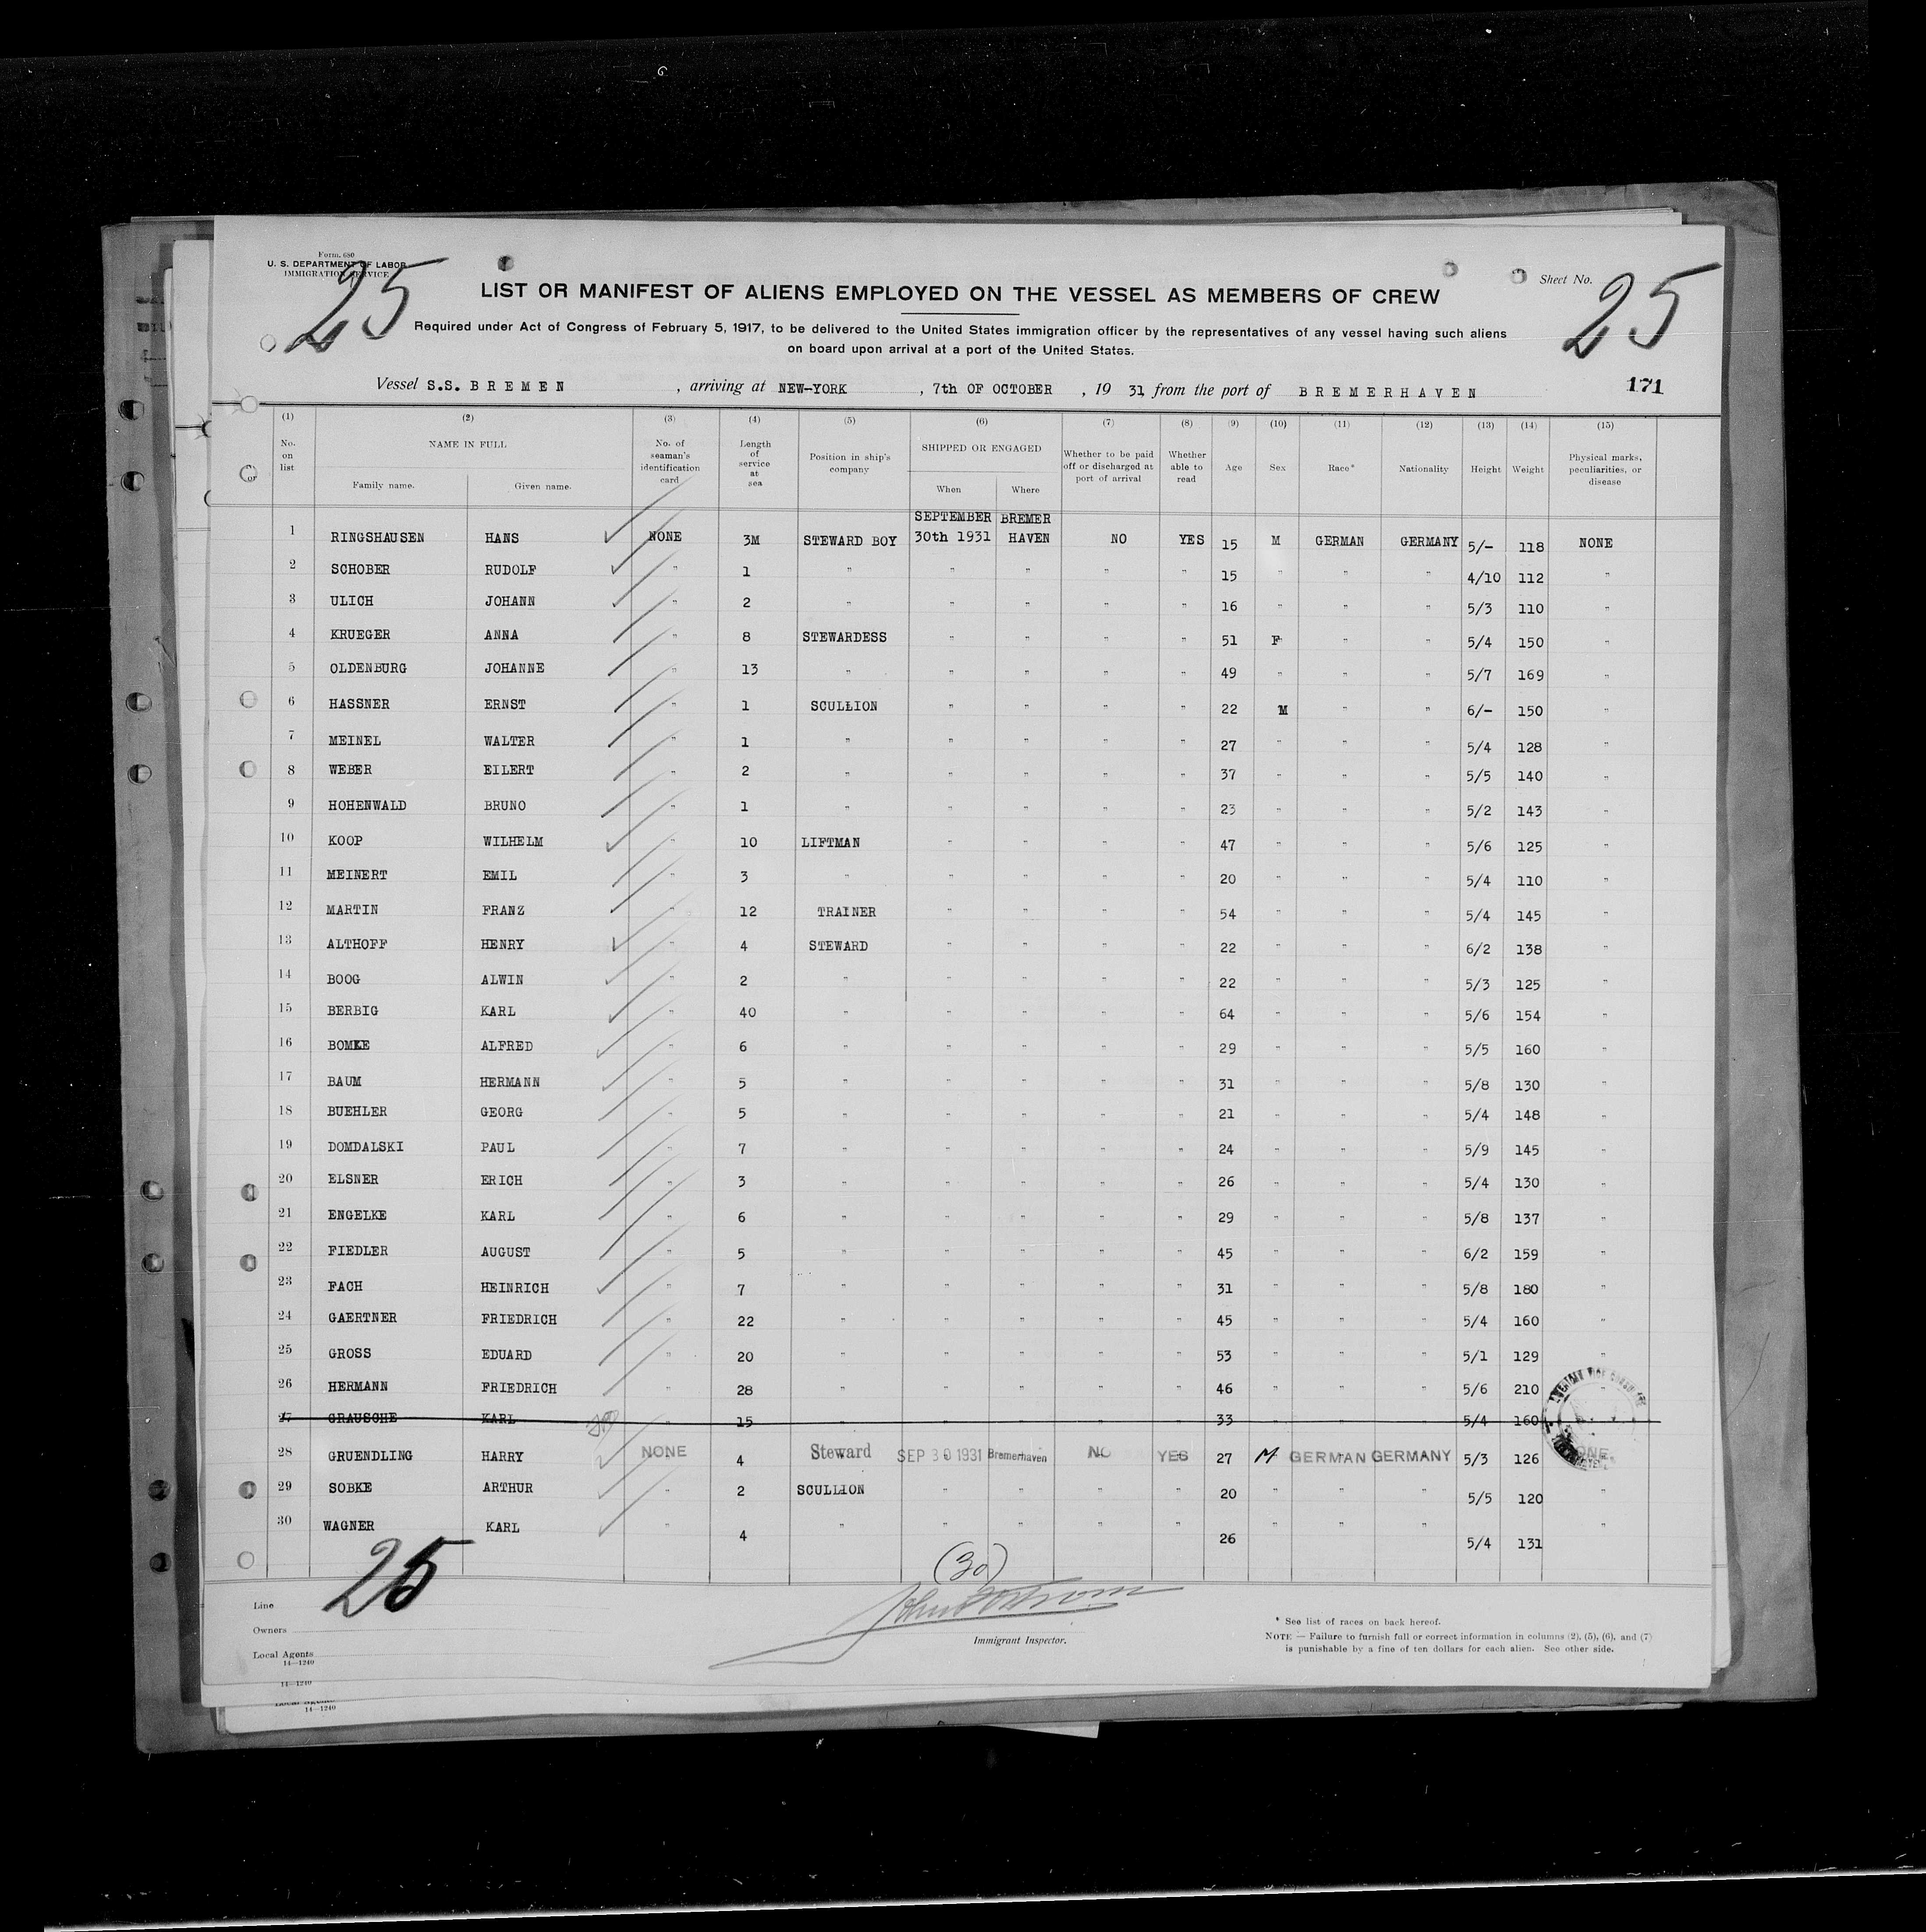 Form 680
U. S. DEPARTMENT OF LABOR
IMMIGRATION SERVICE
25
Sheet No. 25
LIST OR MANIFEST OF ALIENS EMPLOYED ON THE VESSEL AS MEMBERS OF CREW
Required under Act of Congress of February 5, 1917, to be delivered to the United States immigration officer by the representatives of any vessel having such aliens
on board upon arrival at a port of the United States.
Vessel S.S. BREMEN, arriving at NEW-YORK, 7th OF OCTOBER, 19 31 from the port of BREMERHAVEN 171
(1) (2) (3) (4) (5) (6) (7) (8) (9) (10) (11) (12) (13) (14) (15)
No. on list NAME IN FULL Family name. Given name. No. of seaman's identification card Length of service at sea Position in ship's company SHIPPED OR ENGAGED When Where Whether to be paid off or discharged at port of arrival Whether able to read Age Sex Race* Nationality Height Weight Physical marks, peculiarities, or disease
SEPTEMBER BREMER
1 RINGSHAUSEN HANS NONE 3M STEWARD BOY 30th 1931 HAVEN NO YES 15 M GERMAN GERMANY 5/- 118 NONE
2 SCHOBER RUDOLF " 1 " " " " " 15 " " " 4/10 112 "
3 ULICH JOHANN " 2 " " " " " 16 " " " 5/3 110 "
4 KRUEGER ANNA " 8 STEWARDESS " " " " 51 F " " 5/4 150 "
5 OLDENBURG JOHANNE " 13 " " " " " 49 " " " 5/7 169 "
6 HASSNER ERNST " 1 SCULLION " " " " 22 M " " 6/- 150 "
7 MEINEL WALTER " 1 " " " " " 27 " " " 5/4 128 "
8 WEBER EILERT " 2 " " " " " 37 " " " 5/5 140 "
9 HOHENWALD BRUNO " 1 " " " " " 23 " " " 5/2 143 "
10 KOOP WILHELM " 10 LIFTMAN " " " " 47 " " " 5/6 125 "
11 MEINERT EMIL " 3 " " " " " 20 " " " 5/4 110 "
12 MARTIN FRANZ " 12 TRAINER " " " " 54 " " " 5/4 145 "
13 ALTHOFF HENRY " 4 STEWARD " " " " 22 " " " 6/2 138 "
14 BOOG ALWIN " 2 " " " " " 22 " " " 5/3 125 "
15 BERBIG KARL " 40 " " " " " 64 " " " 5/6 154 "
16 BOMKE ALFRED " 6 " " " " " 29 " " " 5/5 160 "
17 BAUM HERMANN " 5 " " " " " 31 " " " 5/8 130 "
18 BUEHLER GEORG " 5 " " " " " 21 " " " 5/4 148 "
19 DOMDALSKI PAUL " 7 " " " " " 24 " " " 5/9 145 "
20 ELSNER ERICH " 3 " " " " " 26 " " " 5/4 130 "
21 ENGELKE KARL " 6 " " " " " 29 " " " 5/8 137 "
22 FIEDLER AUGUST " 5 " " " " " 45 " " " 6/2 159 "
23 FACH HEINRICH " 7 " " " " " 31 " " " 5/8 180 "
24 GAERTNER FRIEDRICH " 22 " " " " " 45 " " " 5/4 160 "
25 GROSS EDUARD " 20 " " " " " 53 " " " 5/1 129 "
26 HERMANN FRIEDRICH " 28 " " " " " 46 " " " 5/6 210 "
27 GRAUSCHE KARL " 15 " " " " " 33 " " " 5/4 160
28 GRUENDLING HARRY NONE 4 Steward SEP 30 1931 Bremerhaven NO YES 27 M GERMAN GERMANY 5/3 126 NONE
29 SOBKE ARTHUR " 2 SCULLION " " " " 20 " " " 5/5 120 "
30 WAGNER KARL " 4 " " " " " 26 " " " 5/4 131 "
25
(30)
Line
Owners
Local Agents
14—1240
Immigrant Inspector.
* See list of races on back hereof.
NOTE — Failure to furnish full or correct information in columns (2), (5), (6), and (7)
is punishable by a fine of ten dollars for each alien. See other side.
14—1240
14—1240